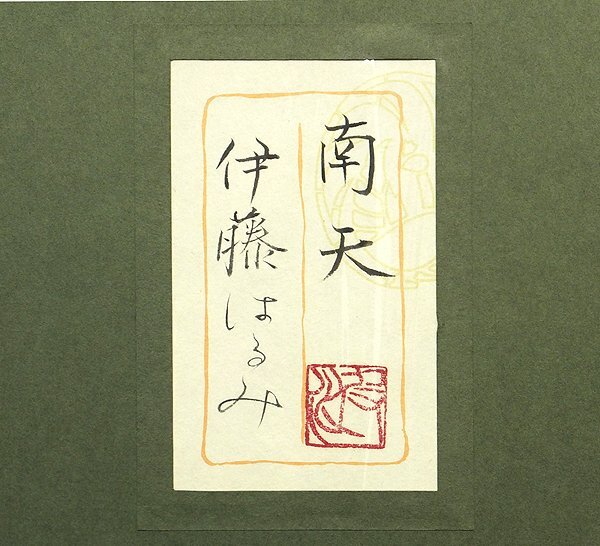 南天
伊藤はるみ